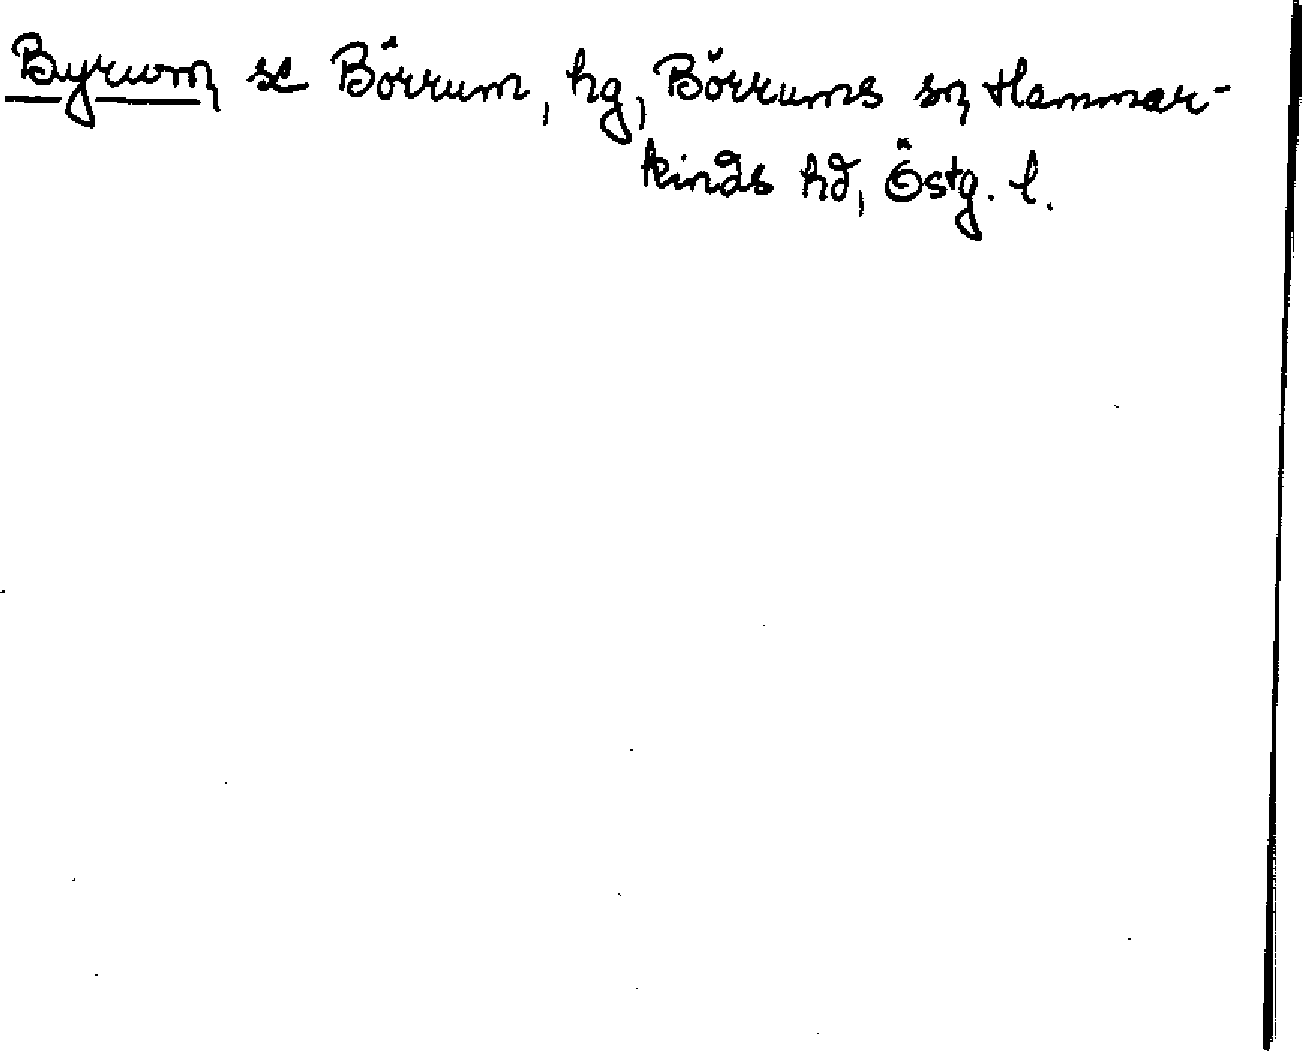 Byrum, se Börrum, hg, Börrums sn, Hammar-
kinds hd, Östg. l.